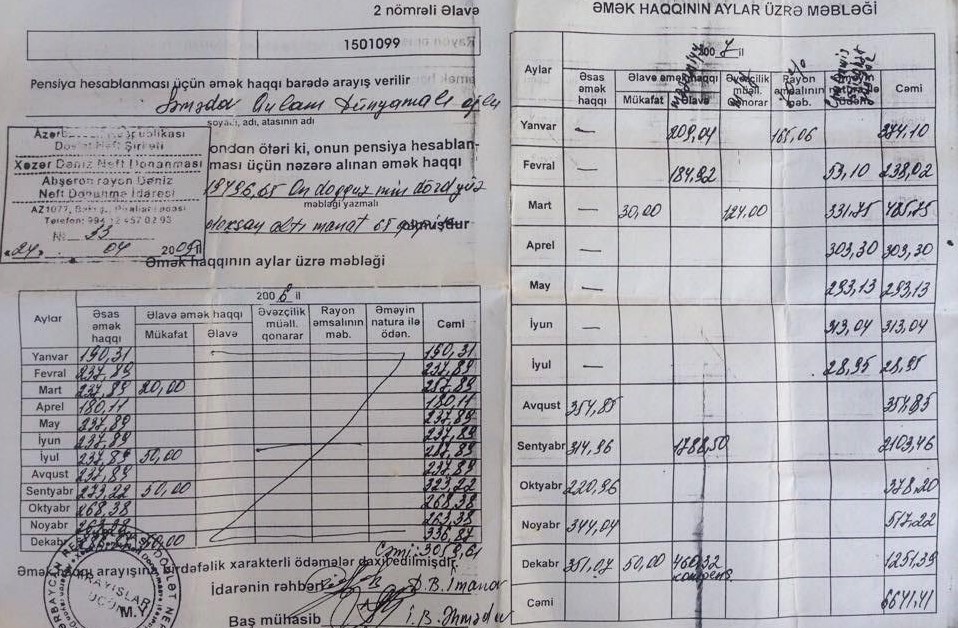 2 nömrəli Əlavə
1501099
Pensiya hesablanması üçün əmək haqqı barədə arayış verilir
Səmədov Qulam Dünyamalı oğlu
soyadı, adı, atasının adı
Azərbaycan Respublikası
Dövlət Neft Şirkəti
Xəzər Dəniz Neft Donanması
Abşeron rayon Dəniz
Neft Donanma İdarəsi
AZ1077, Bakı
Telefon: 994 12 457 02 93
№ 23
«24» 04 2009 il
ondan ötəri ki, onun pensiya hesablan-
ması üçün nəzərə alınan əmək haqqı
19496,65 On doqquz min dörd yüz
məbləği yazmalı
doxsan altı manat 65 olmuşdur
Əmək haqqının aylar üzrə məbləği
2006 il
Aylar Əsas əmək haqqı Əlavə əmək haqqı Mükafat Əlavə Əvəzçilik müəll. qonarar Rayon əmsalının məb. Əməyin natura ilə ödən. Cəmi
Yanvar 190,31 190,31
Fevral 237,89 237,89
Mart 237,89 20,00 257,89
Aprel 180,11 180,11
May 237,89 237,89
İyun 237,89 237,89
İyul 237,89 50,00 287,89
Avqust 237,89 237,89
Sentyabr 273,22 50,00 323,22
Oktyabr 268,38 268,38
Noyabr 263,38 263,38
Dekabr 50,00 336,87
Cəmi: 3059,61
Əmək haqqı arayışına birdəfəlik xarakterli ödəmələr daxil edilmişdir.
İdarənin rəhbəri D.B. İmanov
Baş mühasib İ.B. Əhmədov
ARAYIŞLAR ÜÇÜN
M.Y
ƏMƏK HAQQININ AYLAR ÜZRƏ MƏBLƏĞİ
2007 il
Aylar Əsas əmək haqqı Əlavə əmək haqqı Mükafat Əlavə Əvəzçilik müəll. qonarar Rayon əmsalının məb. Cəmi
Yanvar — 209,04 165,06 374,10
Fevral — 184,92 53,10 238,02
Mart — 30,00 124,00 331,75 485,75
Aprel — 303,30 303,30
May — 293,13 293,13
İyun — 313,04 313,04
İyul — 28,95 28,95
Avqust 357,85 357,85
Sentyabr 314,96 1788,50 2103,46
Oktyabr 220,96 378,20
Noyabr 344,04 517,22
Dekabr 351,07 50,00 466,32 kompens 1251,39
Cəmi 6641,41